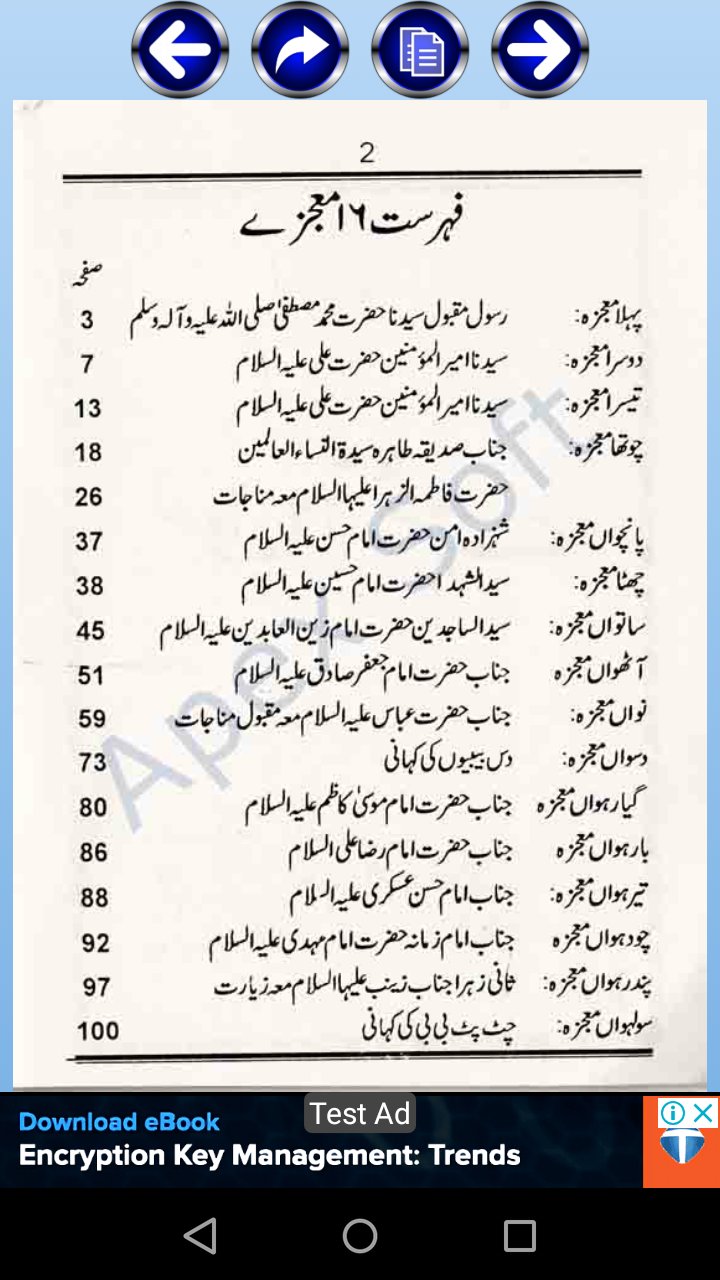 2
فہرست ۱۶ معجزے
صفحہ
پہلا معجزہ: رسول مقبول سیدنا حضرت محمد مصطفیٰ صلی اللہ علیہ وآلہ وسلم 3
دوسرا معجزہ: سیدنا امیر المؤمنین حضرت علی علیہ السلام 7
تیسرا معجزہ: سیدنا امیر المؤمنین حضرت علی علیہ السلام 13
چوتھا معجزہ: جناب صدیقہ طاہرہ سیدۃ النساء العالمین 18
حضرت فاطمہ الزہرا علیہا السلام معہ مناجات 26
پانچواں معجزہ: شہزادہ امن حضرت امام حسن علیہ السلام 37
چھٹا معجزہ: سید الشہدا حضرت امام حسین علیہ السلام 38
ساتواں معجزہ: سید الساجدین حضرت امام زین العابدین علیہ السلام 45
آٹھواں معجزہ جناب حضرت امام جعفر صادق علیہ السلام 51
نواں معجزہ: جناب حضرت عباس علیہ السلام معہ مقبول مناجات 59
دسواں معجزہ: دس بیبیوں کی کہانی 73
گیارہواں معجزہ جناب حضرت امام موسیٰ کاظم علیہ السلام 80
بارہواں معجزہ جناب حضرت امام رضا علی السلام 86
تیرہواں معجزہ: جناب امام حسن عسکری علیہ السلام 88
چودہواں معجزہ جناب امام زمانہ حضرت امام مہدی علیہ السلام 92
پندرہواں معجزہ: ثانی زہرا جناب زینب علیہا السلام معہ زیارت 97
سولہواں معجزہ: چٹ پٹ بی بی کی کہانی 100
Apex Soft
Test Ad
Download eBook
Encryption Key Management: Trends